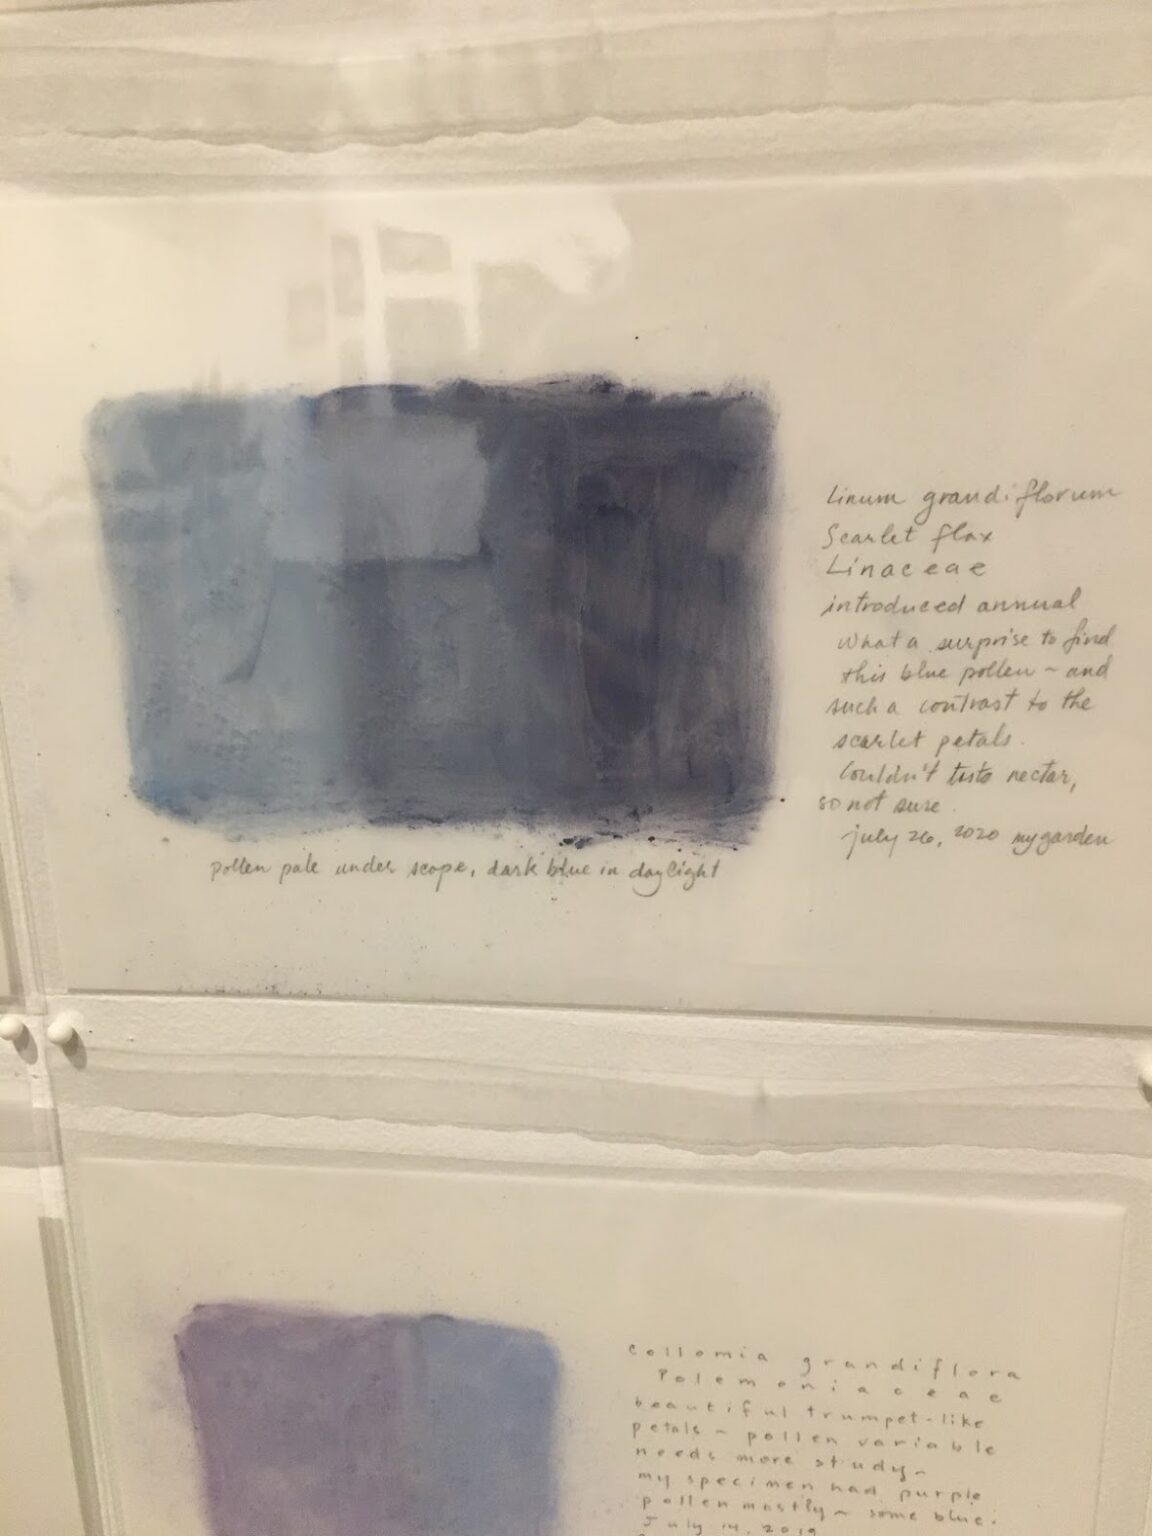 Linum grandiflorum
Scarlet flax
Linaceae
introduced annual
what a surprise to find
this blue pollen ~ and
such a contrast to the
scarlet petals.
Couldn't taste nectar,
so not sure.
july 26, 2020 my garden
pollen pale under scope, dark blue in daylight
collomia grandiflora
Polemoniaceae
beautiful trumpet-like
petals ~ pollen variable
needs more study ~
my specimen had purple
pollen mostly ~ some blue.
July 14, 2019